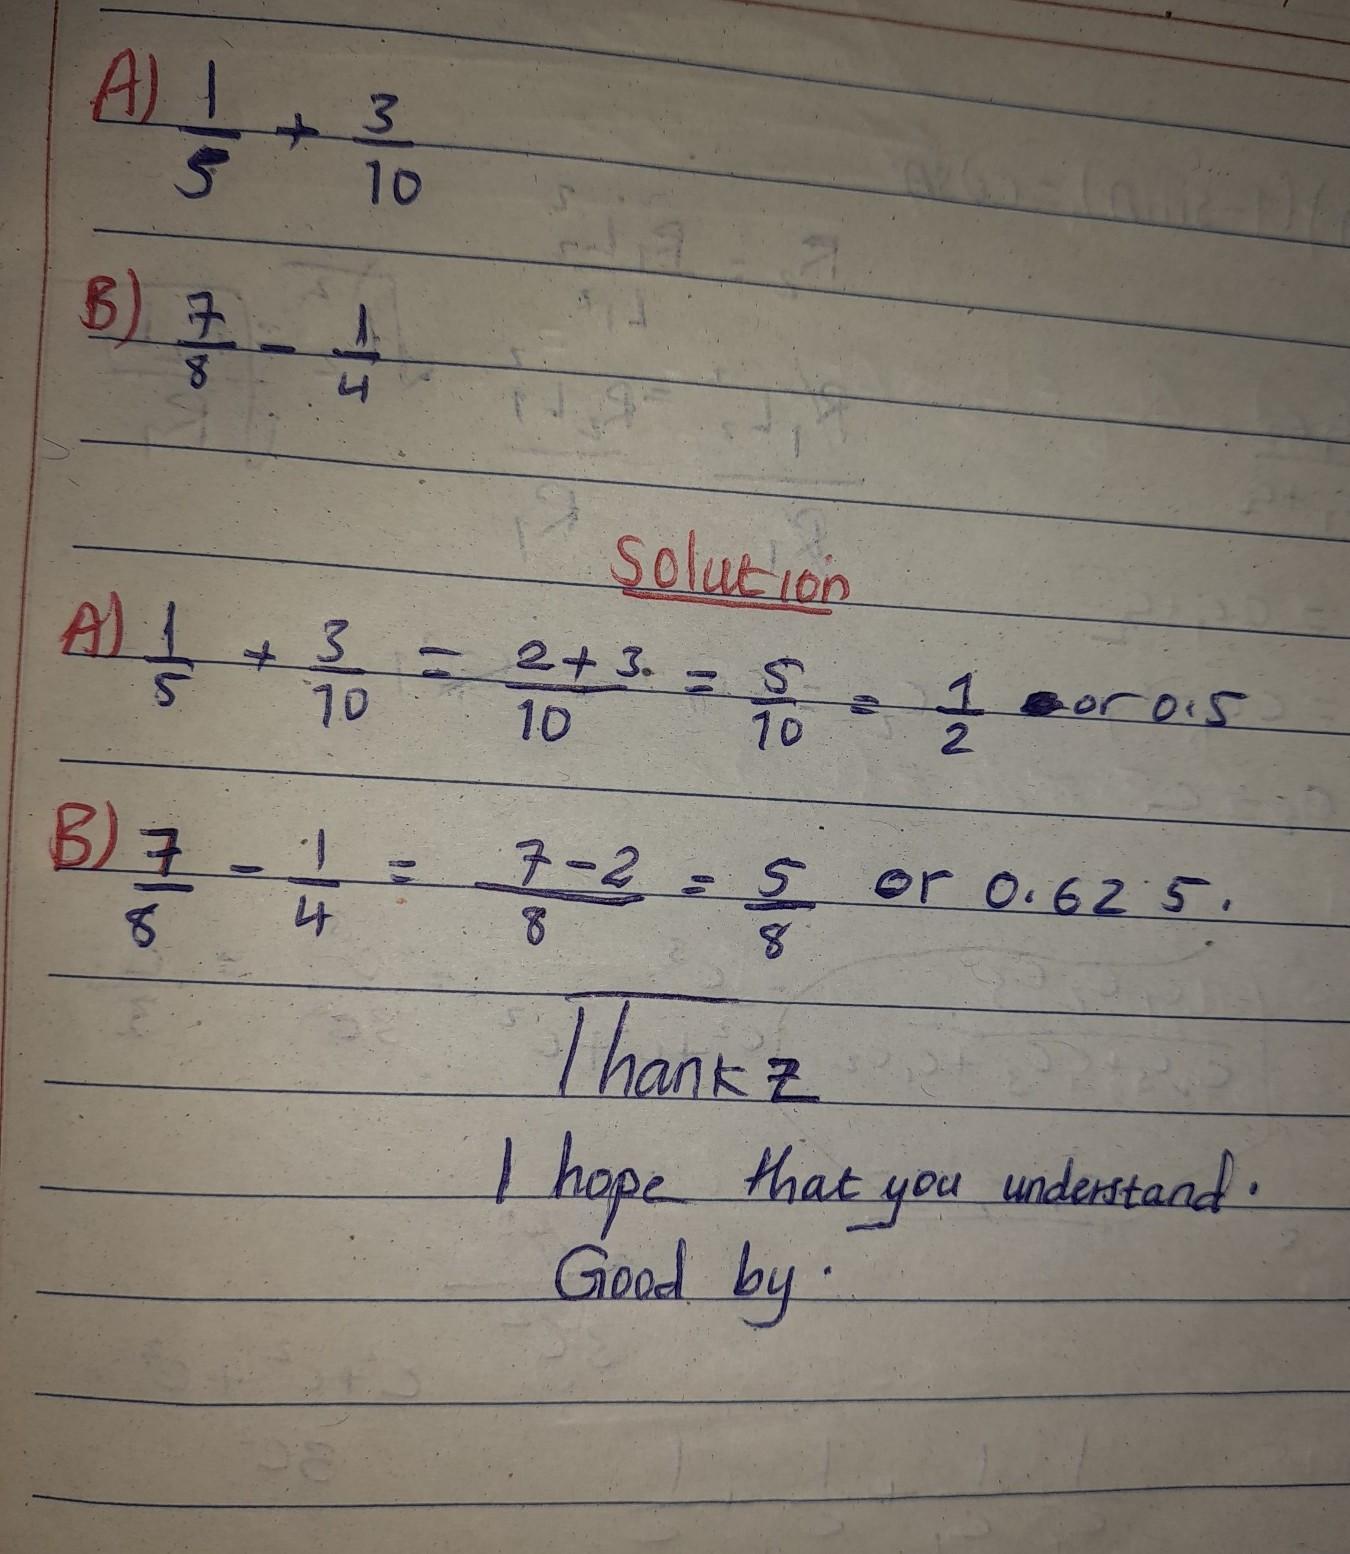 A) 1/5 + 3/10
B) 7/8 - 1/4
Solution
A) 1/5 + 3/10 = 2+3/10 = 5/10 = 1/2 or 0.5
B) 7/8 - 1/4 = 7-2/8 = 5/8 or 0.625.
Thankz
I hope that you understand.
Good by.